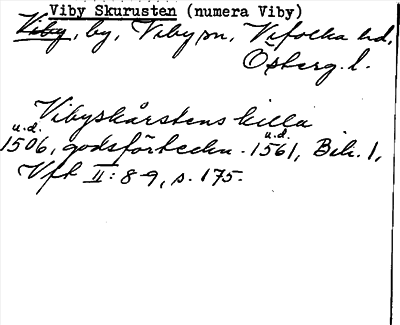 Viby Skurusten (numera Viby)
Viby, by, Viby sn, Vifolka hd,
Österg. l.
Vibyskårstens killa
u.d. u.d.
1506, godsförteckn. 1561, Bih. 1,
Vft II: 8-9, s. 175.